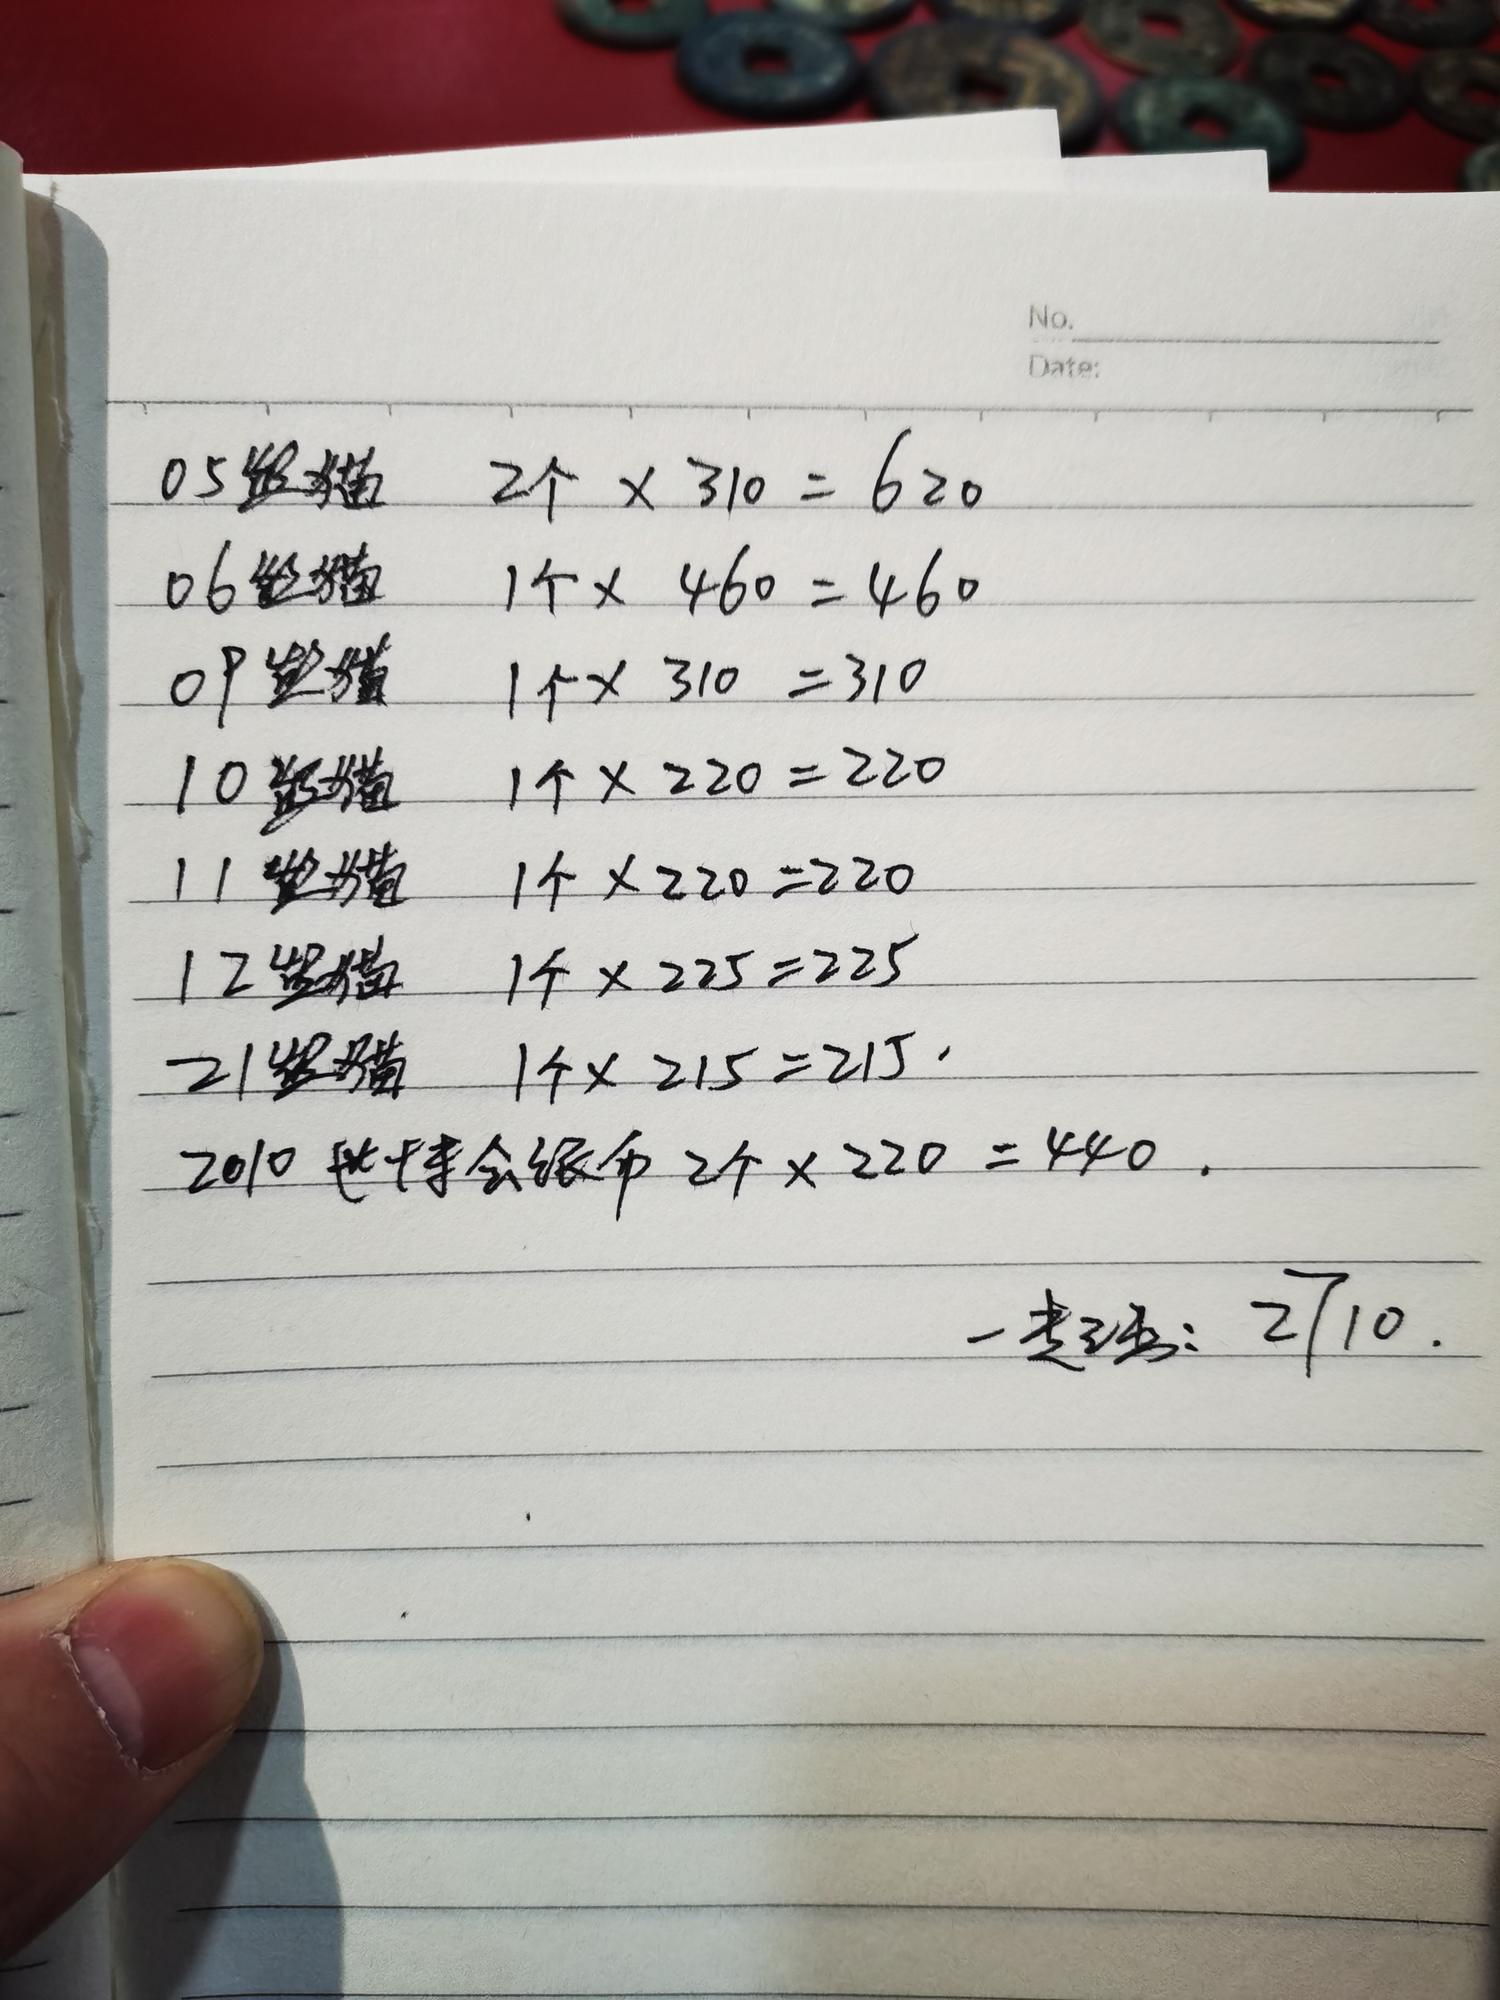 No.
Date:
05银猫 2个 × 310 = 620
06银猫 1个 × 460 = 460
09银猫 1个 × 310 = 310
10银猫 1个 × 220 = 220
11银猫 1个 × 220 = 220
12银猫 1个 × 225 = 225
21银猫 1个 × 215 = 215.
2010世博会纸币 2个 × 220 = 440.
一走: 2710.